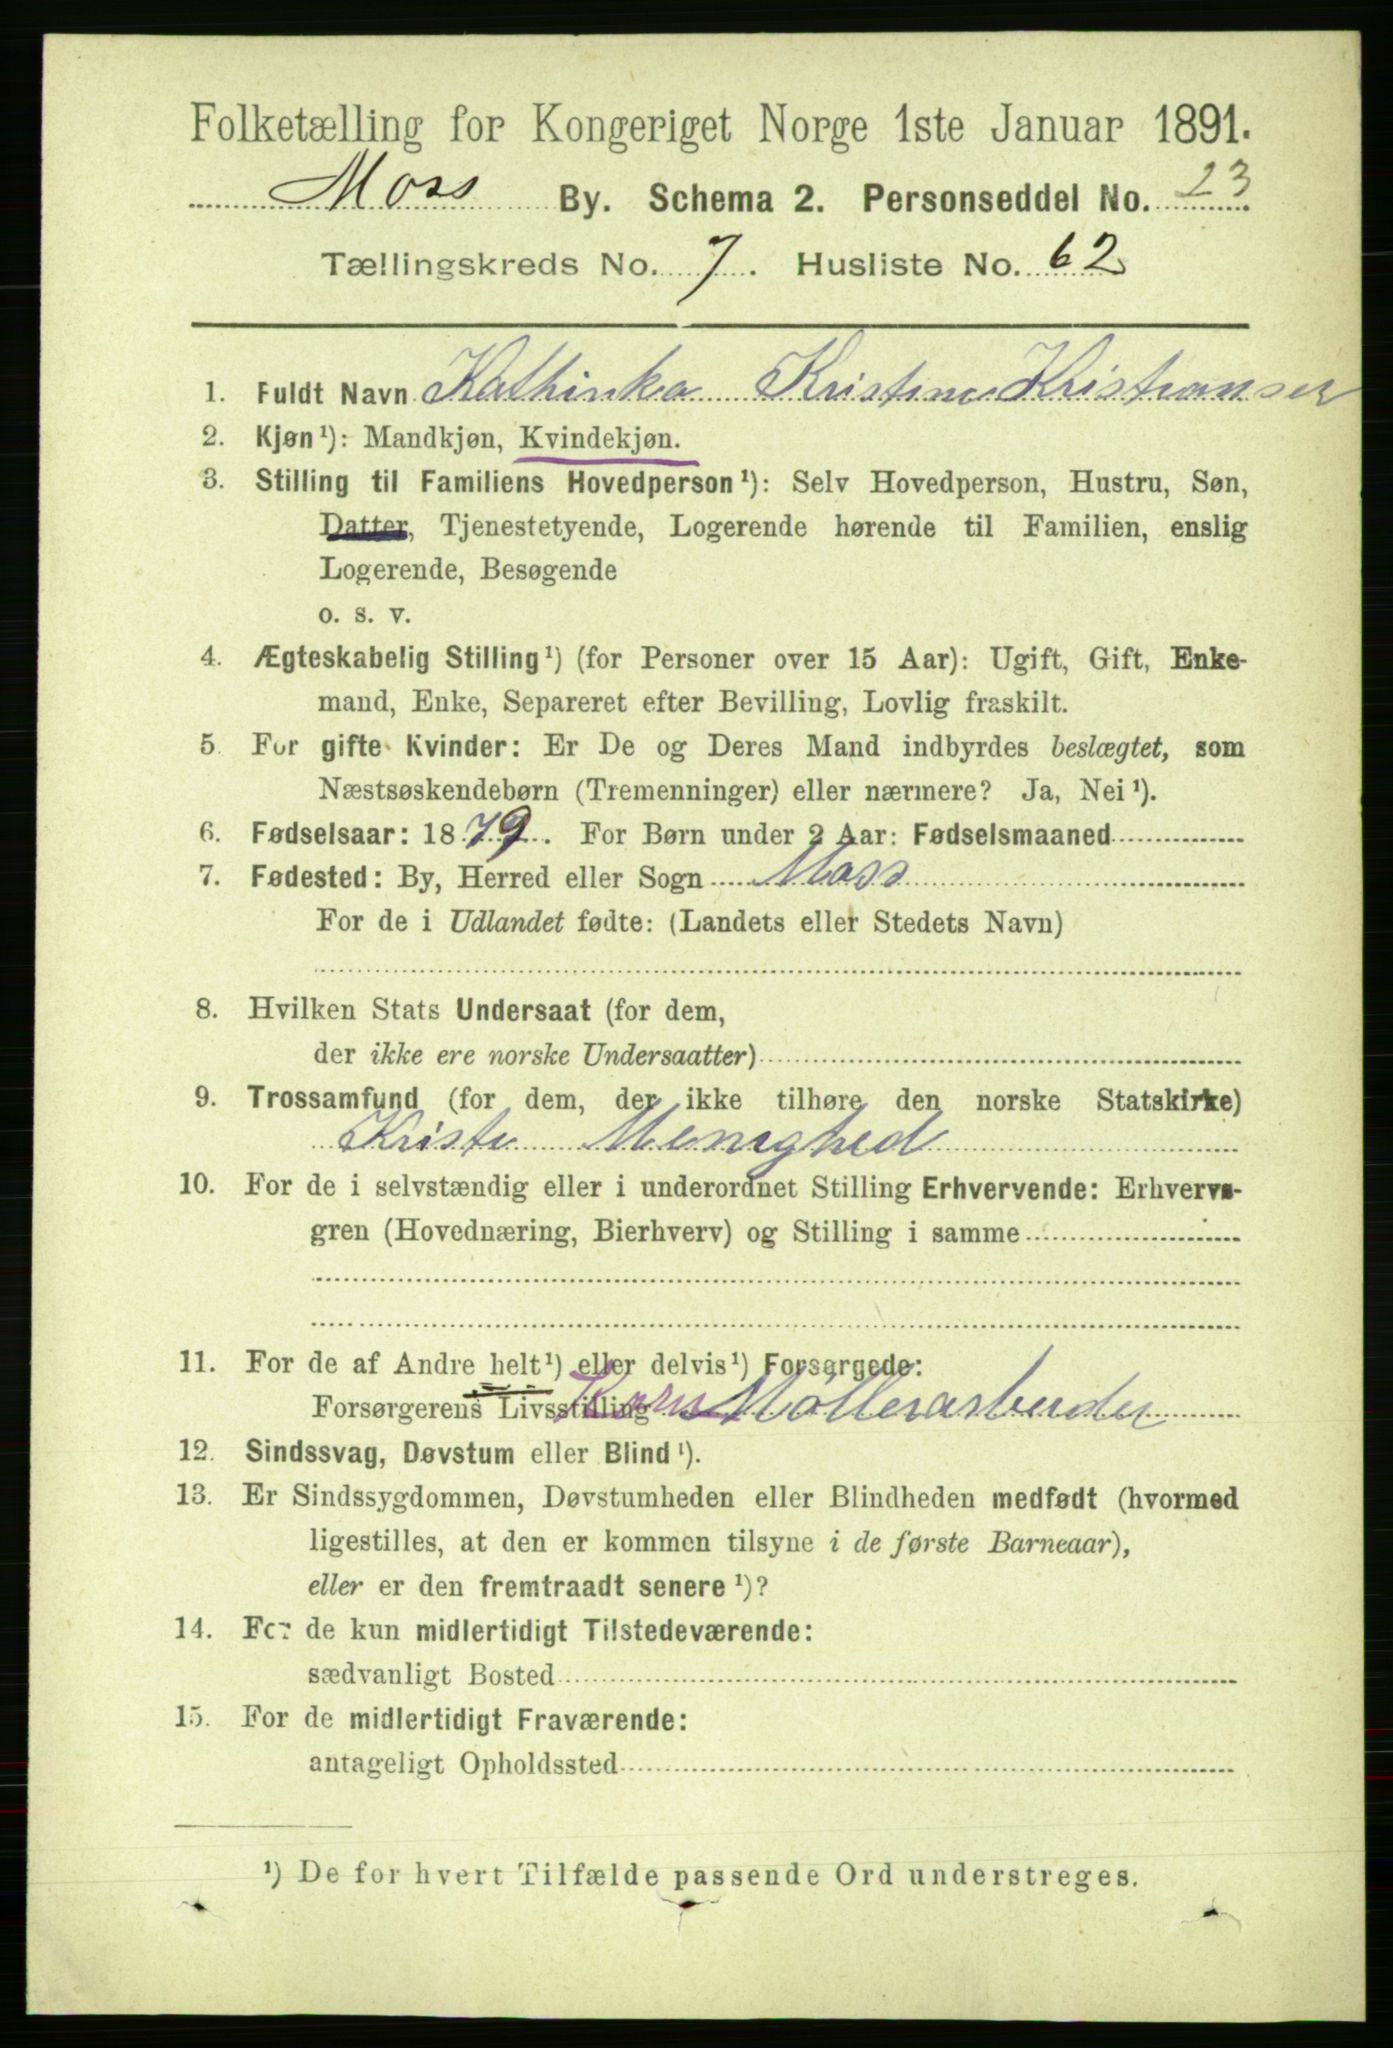 Folketælling for Kongeriget Norge 1ste Januar 1891.
Moss By. Schema 2. Personseddel No. 23
Tællingskreds No. 7. Husliste No. 62
1. Fuldt Navn Kathinka Kristine Kristiansen
2. Kjøn ¹): Mandkjøn, Kvindekjøn.
3. Stilling til Familiens Hovedperson ¹): Selv Hovedperson, Hustru, Søn,
Datter, Tjenestetyende, Logerende hørende til Familien, enslig
Logerende, Besøgende
o. s. v.
4. Ægteskabelig Stilling ¹) (for Personer over 15 Aar): Ugift, Gift, Enke-
mand, Enke, Separeret efter Bevilling, Lovlig fraskilt.
5. For gifte Kvinder: Er De og Deres Mand indbyrdes beslægtet, som
Næstsøskendebørn (Tremenninger) eller nærmere? Ja, Nei ¹).
6. Fødselsaar: 1879. For Børn under 2 Aar: Fødselsmaaned
7. Fødested: By, Herred eller Sogn Moss
For de i Udlandet fødte: (Landets eller Stedets Navn)
8. Hvilken Stats Undersaat (for dem,
der ikke ere norske Undersaatter)
9. Trossamfund (for dem, der ikke tilhøre den norske Statskirke)
Kristi Menighed
10. For de i selvstændig eller i underordnet Stilling Erhvervende: Erhvervs-
gren (Hovednæring, Bierhverv) og Stilling i samme
11. For de af Andre helt ¹) eller delvis ¹) Forsørgede:
Forsørgerens Livsstilling Korn Møllerarbeider
12. Sindssvag, Døvstum eller Blind ¹).
13. Er Sindssygdommen, Døvstumheden eller Blindheden medfødt (hvormed
ligestilles, at den er kommen tilsyne i de første Barneaar),
eller er den fremtraadt senere ¹)?
14. For de kun midlertidigt Tilstedeværende:
sædvanligt Bosted
15. For de midlertidigt Fraværende:
antageligt Opholdssted
¹) De for hvert Tilfælde passende Ord understreges.